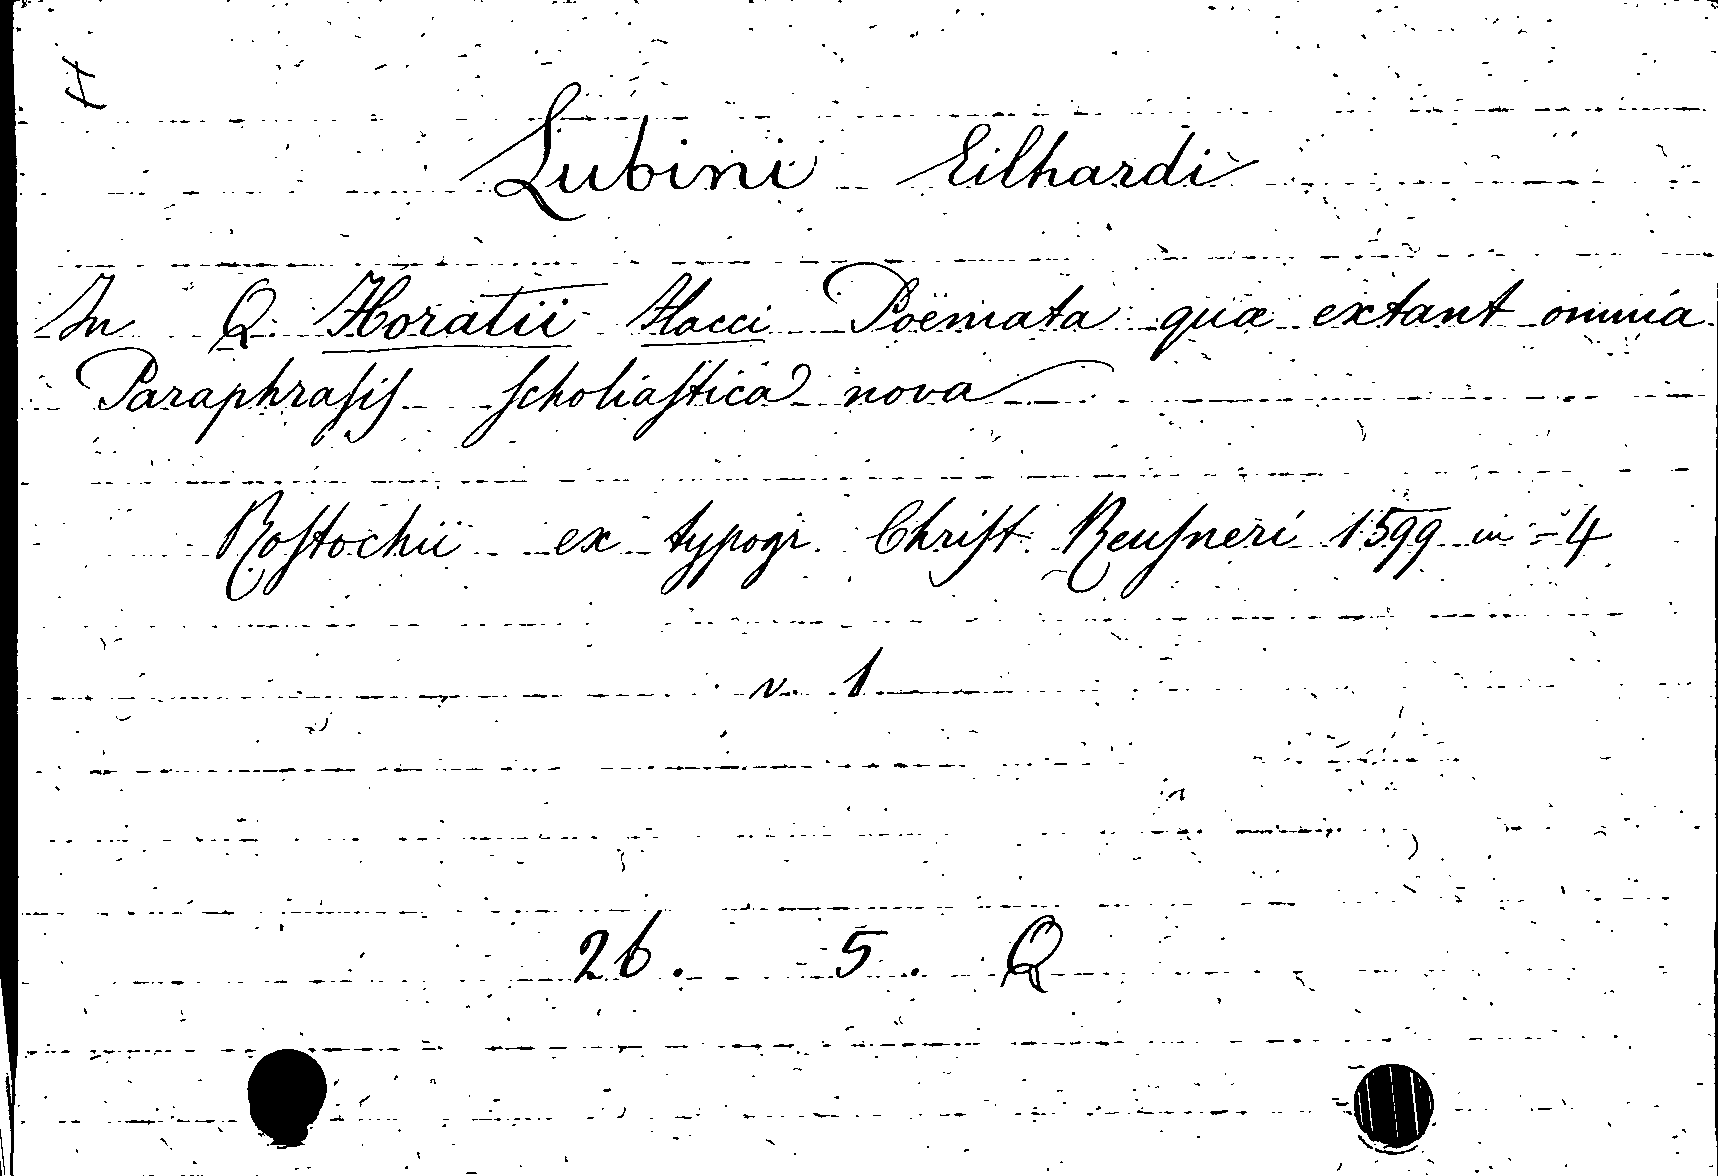 H
Lubini Eilhardi
In Q. Horatii Flacci Poëmata quæ extant omnia
Paraphraſiſ ſcholiaſtica nova
Roſtochii ex typogr. Chriſt. Reuſneri 1599 in = 4
v. 1
26. 5. Q